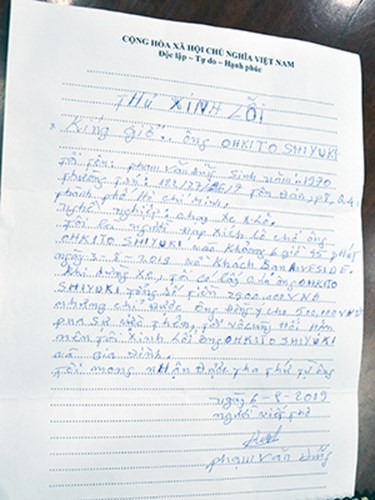 CỘNG HÒA XÃ HỘI CHỦ NGHĨA VIỆT NAM
Độc lập – Tự do – Hạnh phúc
THƯ XINH LỖI
Kíng giởi.. ông OHKITO SHIYUKI
Tôi tên: phạm Văn Dũng Sinh năm: 1970
phường trú: Tôn Đản, p8, Q.4.
thành phố Hồ chí minh.
Nghề nghiệp: chạy xe xích lô.
Tôi là người đạp xích lô chở ông
OHKITO SHIYUKI vào khoảng 6 giờ 45 phút
ngày 3-8-2019 về khách sạn RIVESIDE.
Khi dừng xe, tôi có lấy của ông OHKITO
SHIYUKI tổng số tiền 2900.000 VNĐ
nhưng chỉ được ông đồng ý cho 500.000 VNĐ
qua sự việc trên, tôi vô cùng hối hận
nên tôi xinh lỗi ông OHKITO SHIYUKI
và gia đình.
tôi mong nhận được tha thứ từ ông
ngày 6-8-2019
người viết thư
phạm văn Dũng